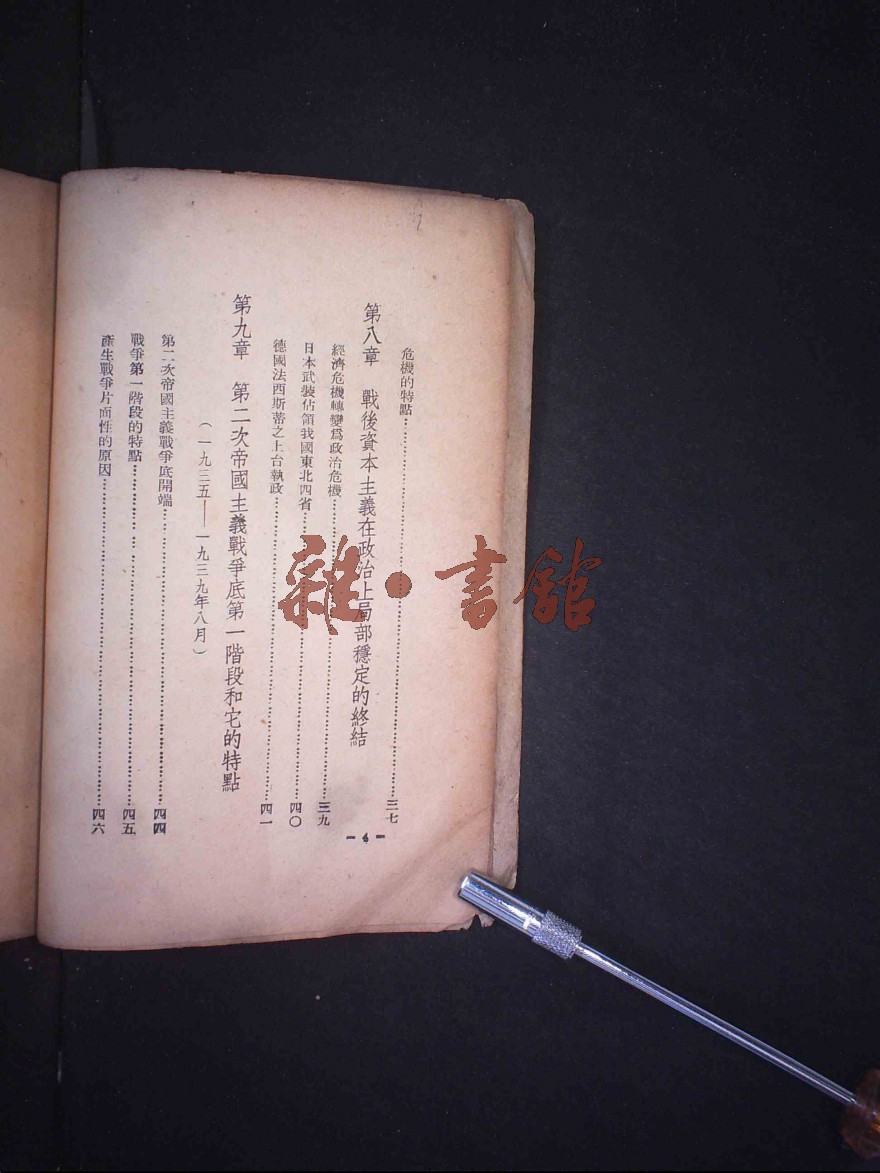 危機的特點……三七
第八章 戰後資本主義在政治上局部穩定的終結
經濟危機轉變爲政治危機……三九
日本武裝佔領我國東北四省……四〇
德國法西斯蒂之上台執政……四一
第九章 第二次帝國主義戰爭底第一階段和它的特點
（一九三五——一九三九年八月）
第二次帝國主義戰爭底開端……四四
戰爭第一階段的特點……四五
產生戰爭片面性的原因……四六
- 4 -
雜·書館